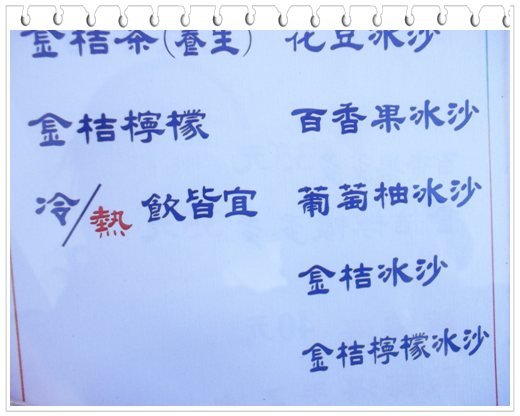 金桔茶(養生)
金桔檸檬
冷/熱 飲皆宜
花豆冰沙
百香果冰沙
葡萄柚冰沙
金桔冰沙
金桔檸檬冰沙